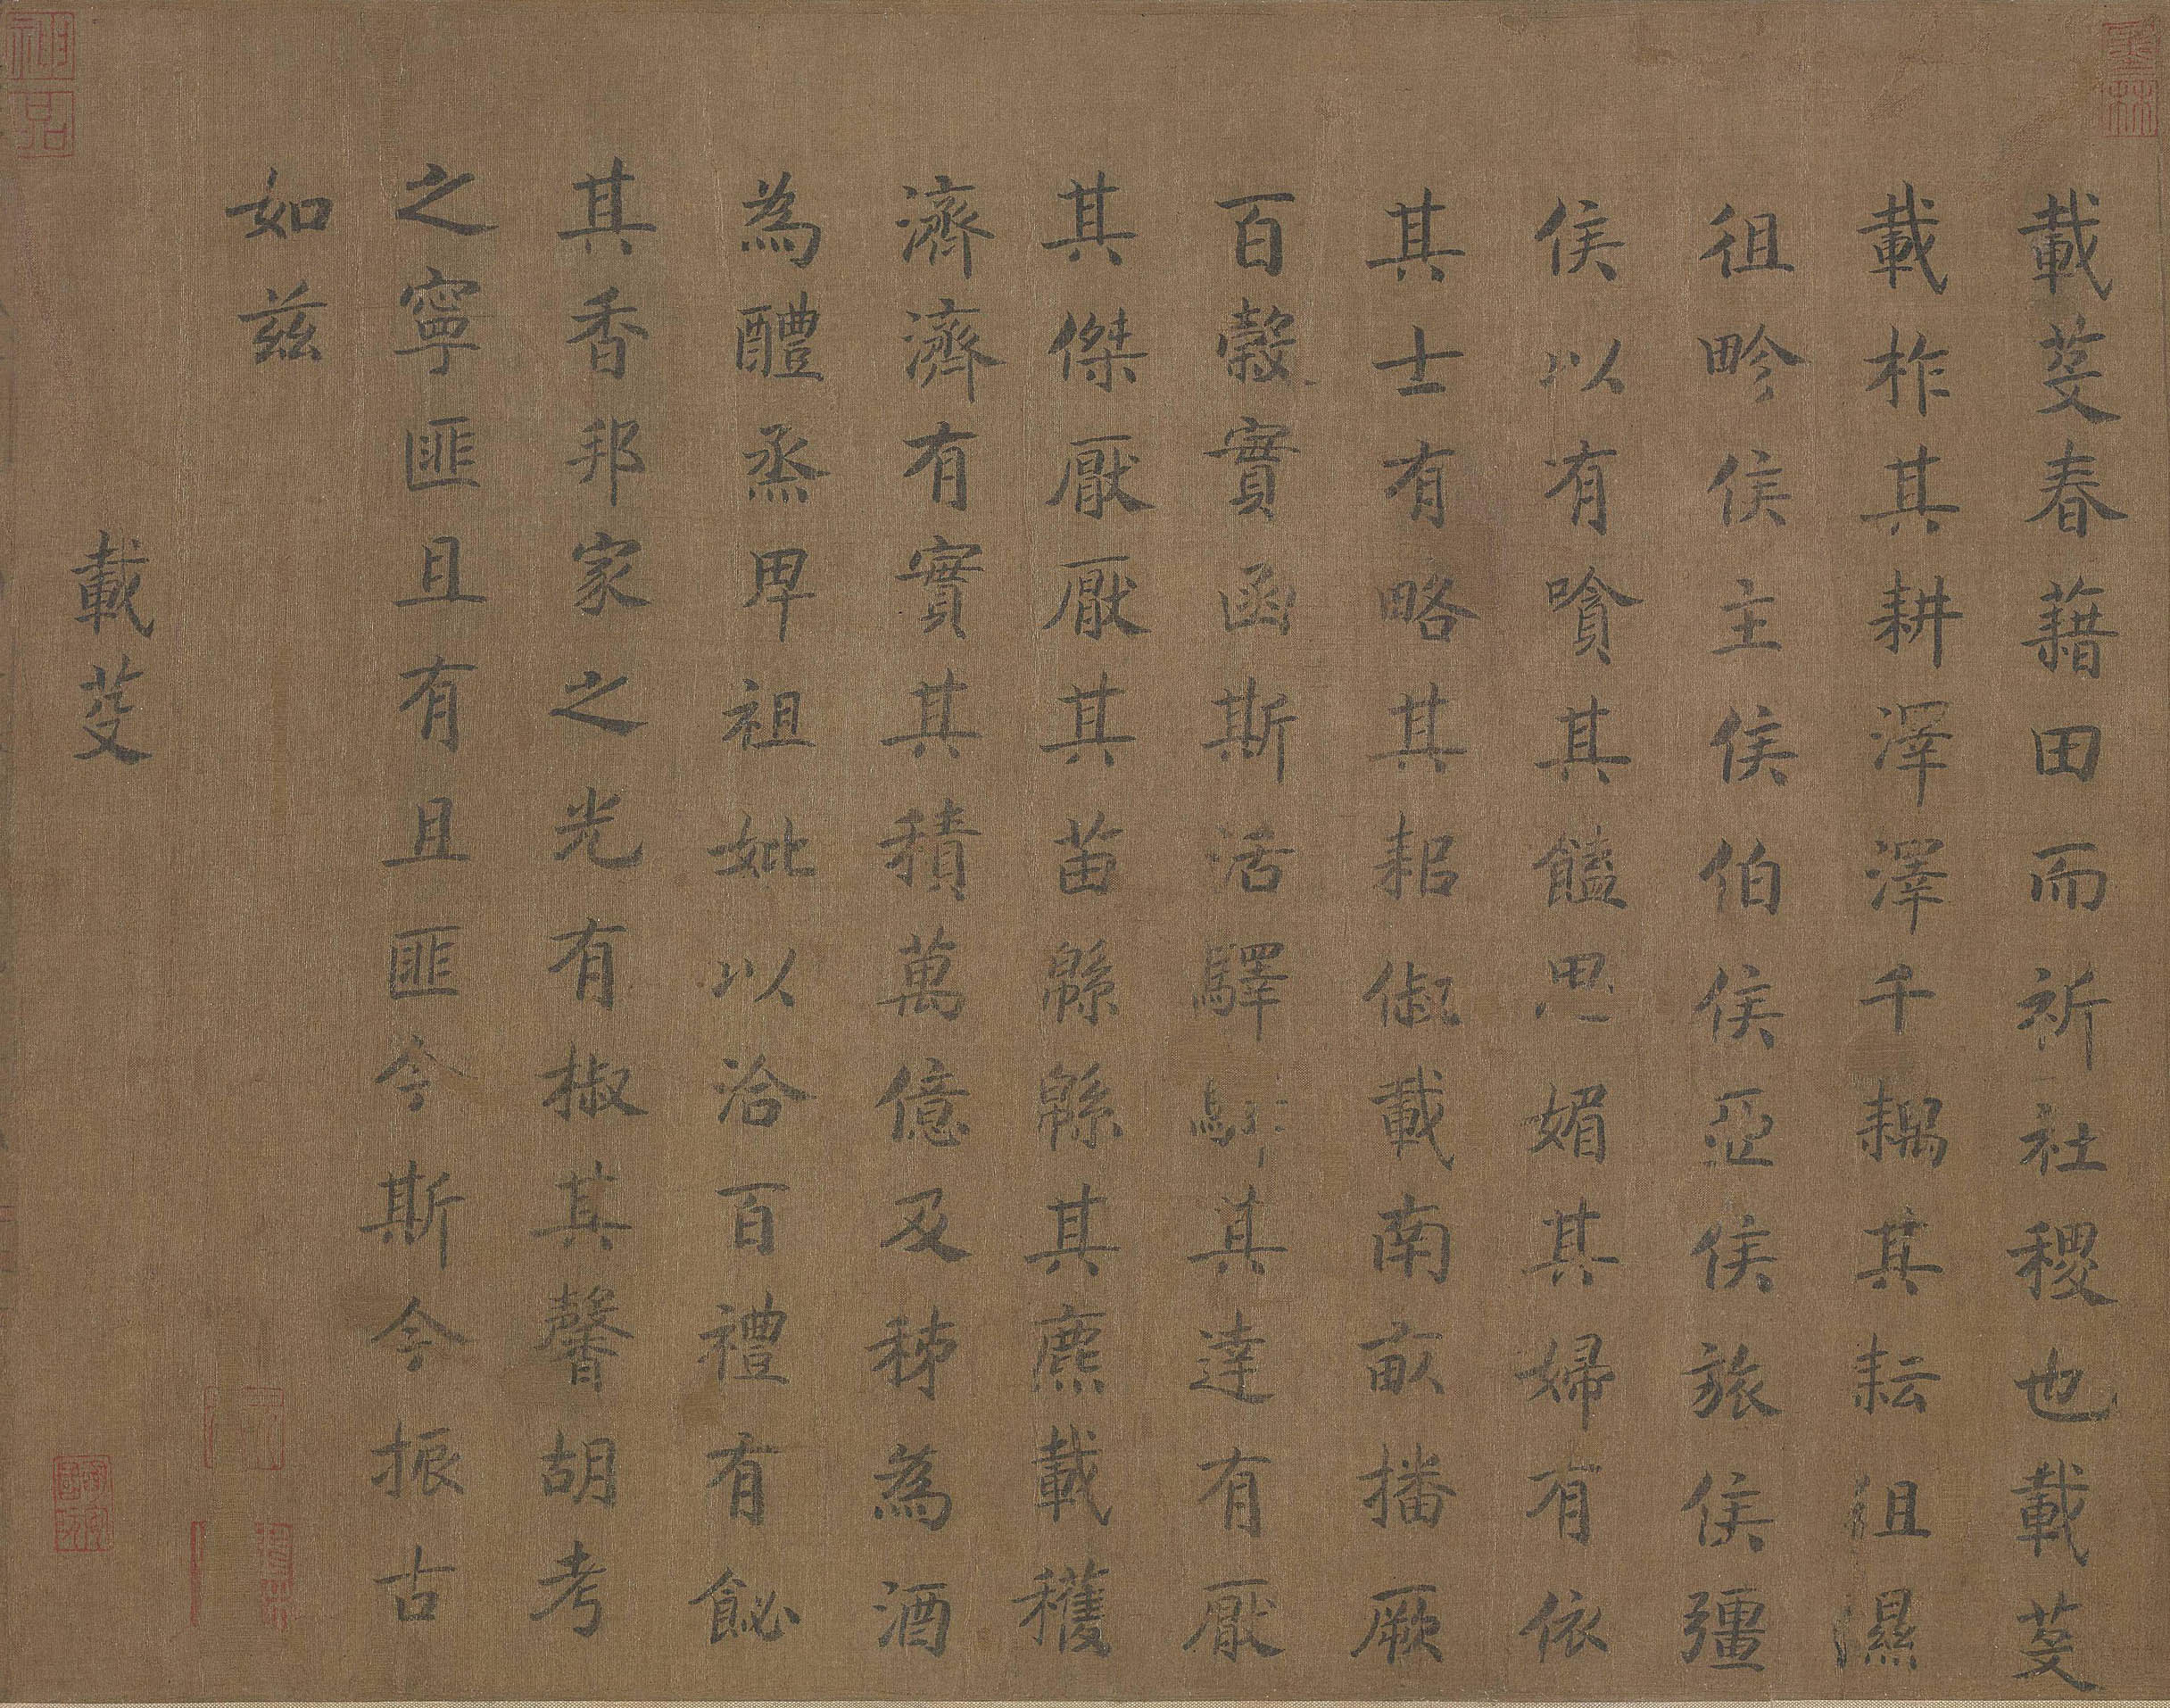 載芟春藉田而祈社稷也載芟
載柞其耕澤澤千耦其耘徂隰
徂畛侯主侯伯侯亞侯旅侯彊
侯以有嗿其饁思媚其婦有依
其士有略其耜俶載南畝播厥
百穀實函斯活驛驛其達有厭
其傑厭厭其苗緜緜其麃載穫
濟濟有實其積萬億及秭為酒
為醴烝畀祖妣以洽百禮有飶
其香邦家之光有椒其馨胡考
之寧匪且有且匪今斯今振古
如茲
載芟